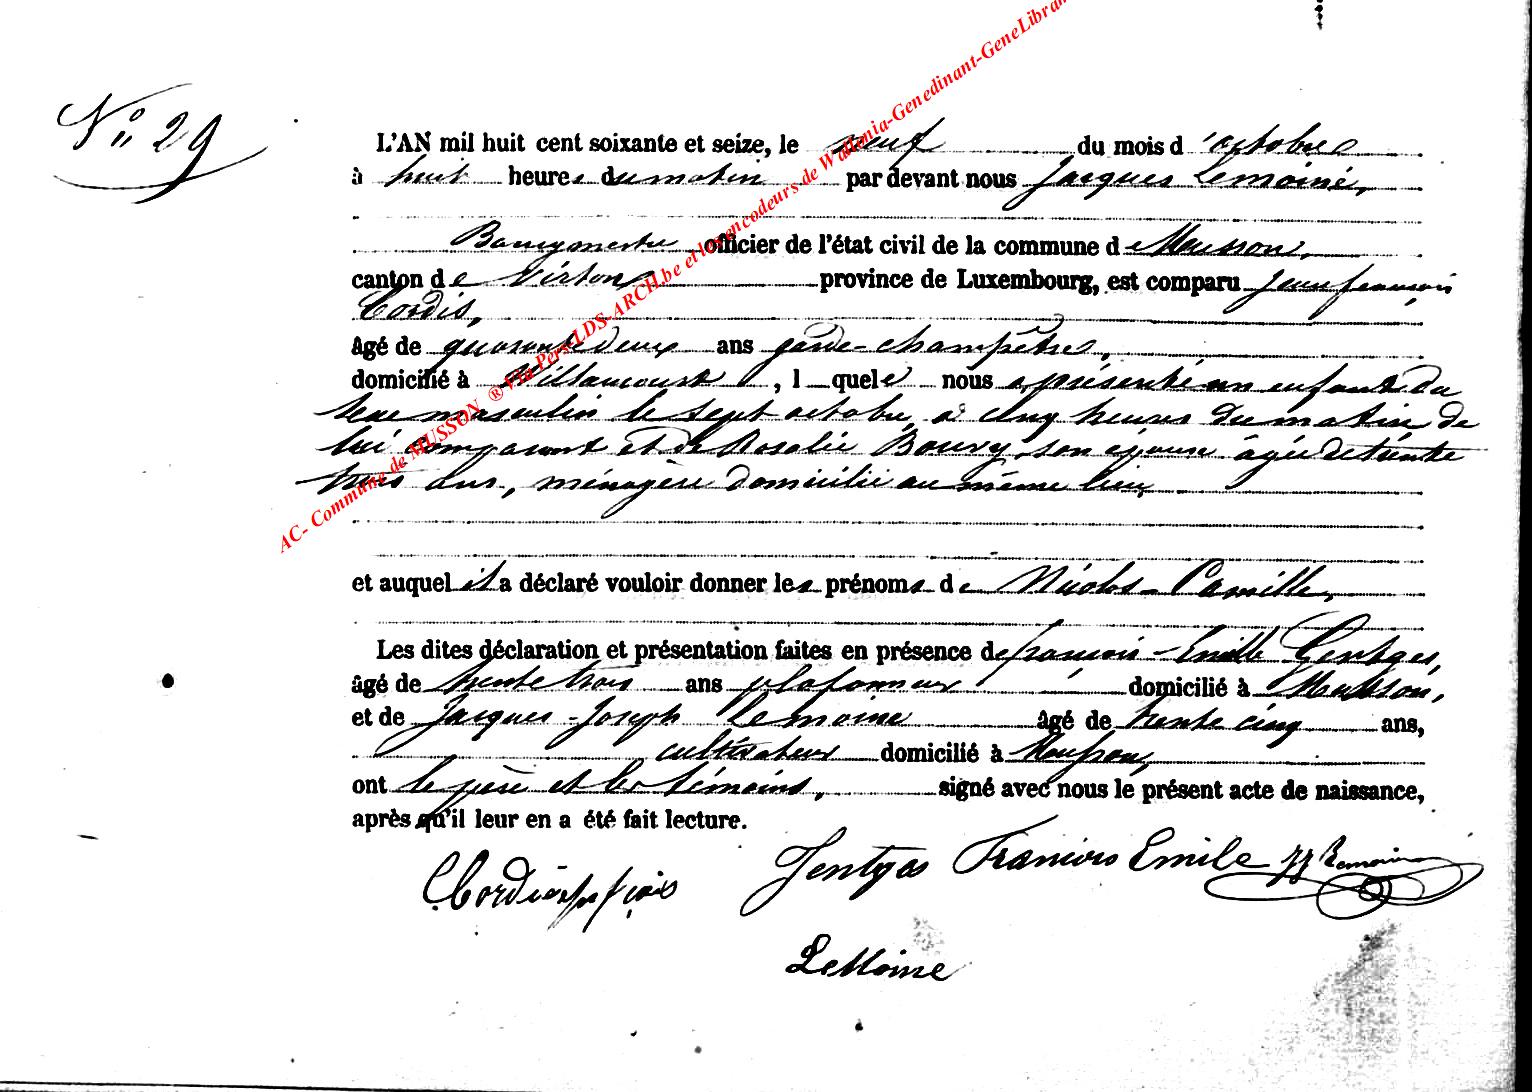 N° 29
L'AN mil huit cent soixante et seize, le neuf du mois d'octobre
à huit heures du matin par devant nous Jacques Lemoine,
Bourgmestre officier de l'état civil de la commune de Musson,
canton de Virton province de Luxembourg, est comparu Jean françois
Cordis,
âgé de quarante deux ans garde-champêtre,
domicilié à Willancourt, lequel nous a présenté un enfant du
sexe masculin le sept octobre à cinq heures du matin de
lui comparant et de Rosalie Boury, son épouse âgée de trente
trois ans, ménagère domiciliée au même lieu,
et auquel il a déclaré vouloir donner les prénoms de Nicolas-Camille,
Les dites déclaration et présentation faites en présence de françois-Emile Gentges,
âgé de trente trois ans plafonneur domicilié à Musson,
et de Jacques-Joseph Lemoine âgé de trente cinq ans,
cultivateur domicilié à Musson,
ont le père et les témoins, signé avec nous le présent acte de naissance,
après qu'il leur en a été fait lecture.
Jentges Francois Emile JJ Lemoine
LeMoine
AC- Commune de MUSSON ® Via Pers-LDS-ARCH.be et les encodeurs de Wallonia-Genedinant-GeneLibran